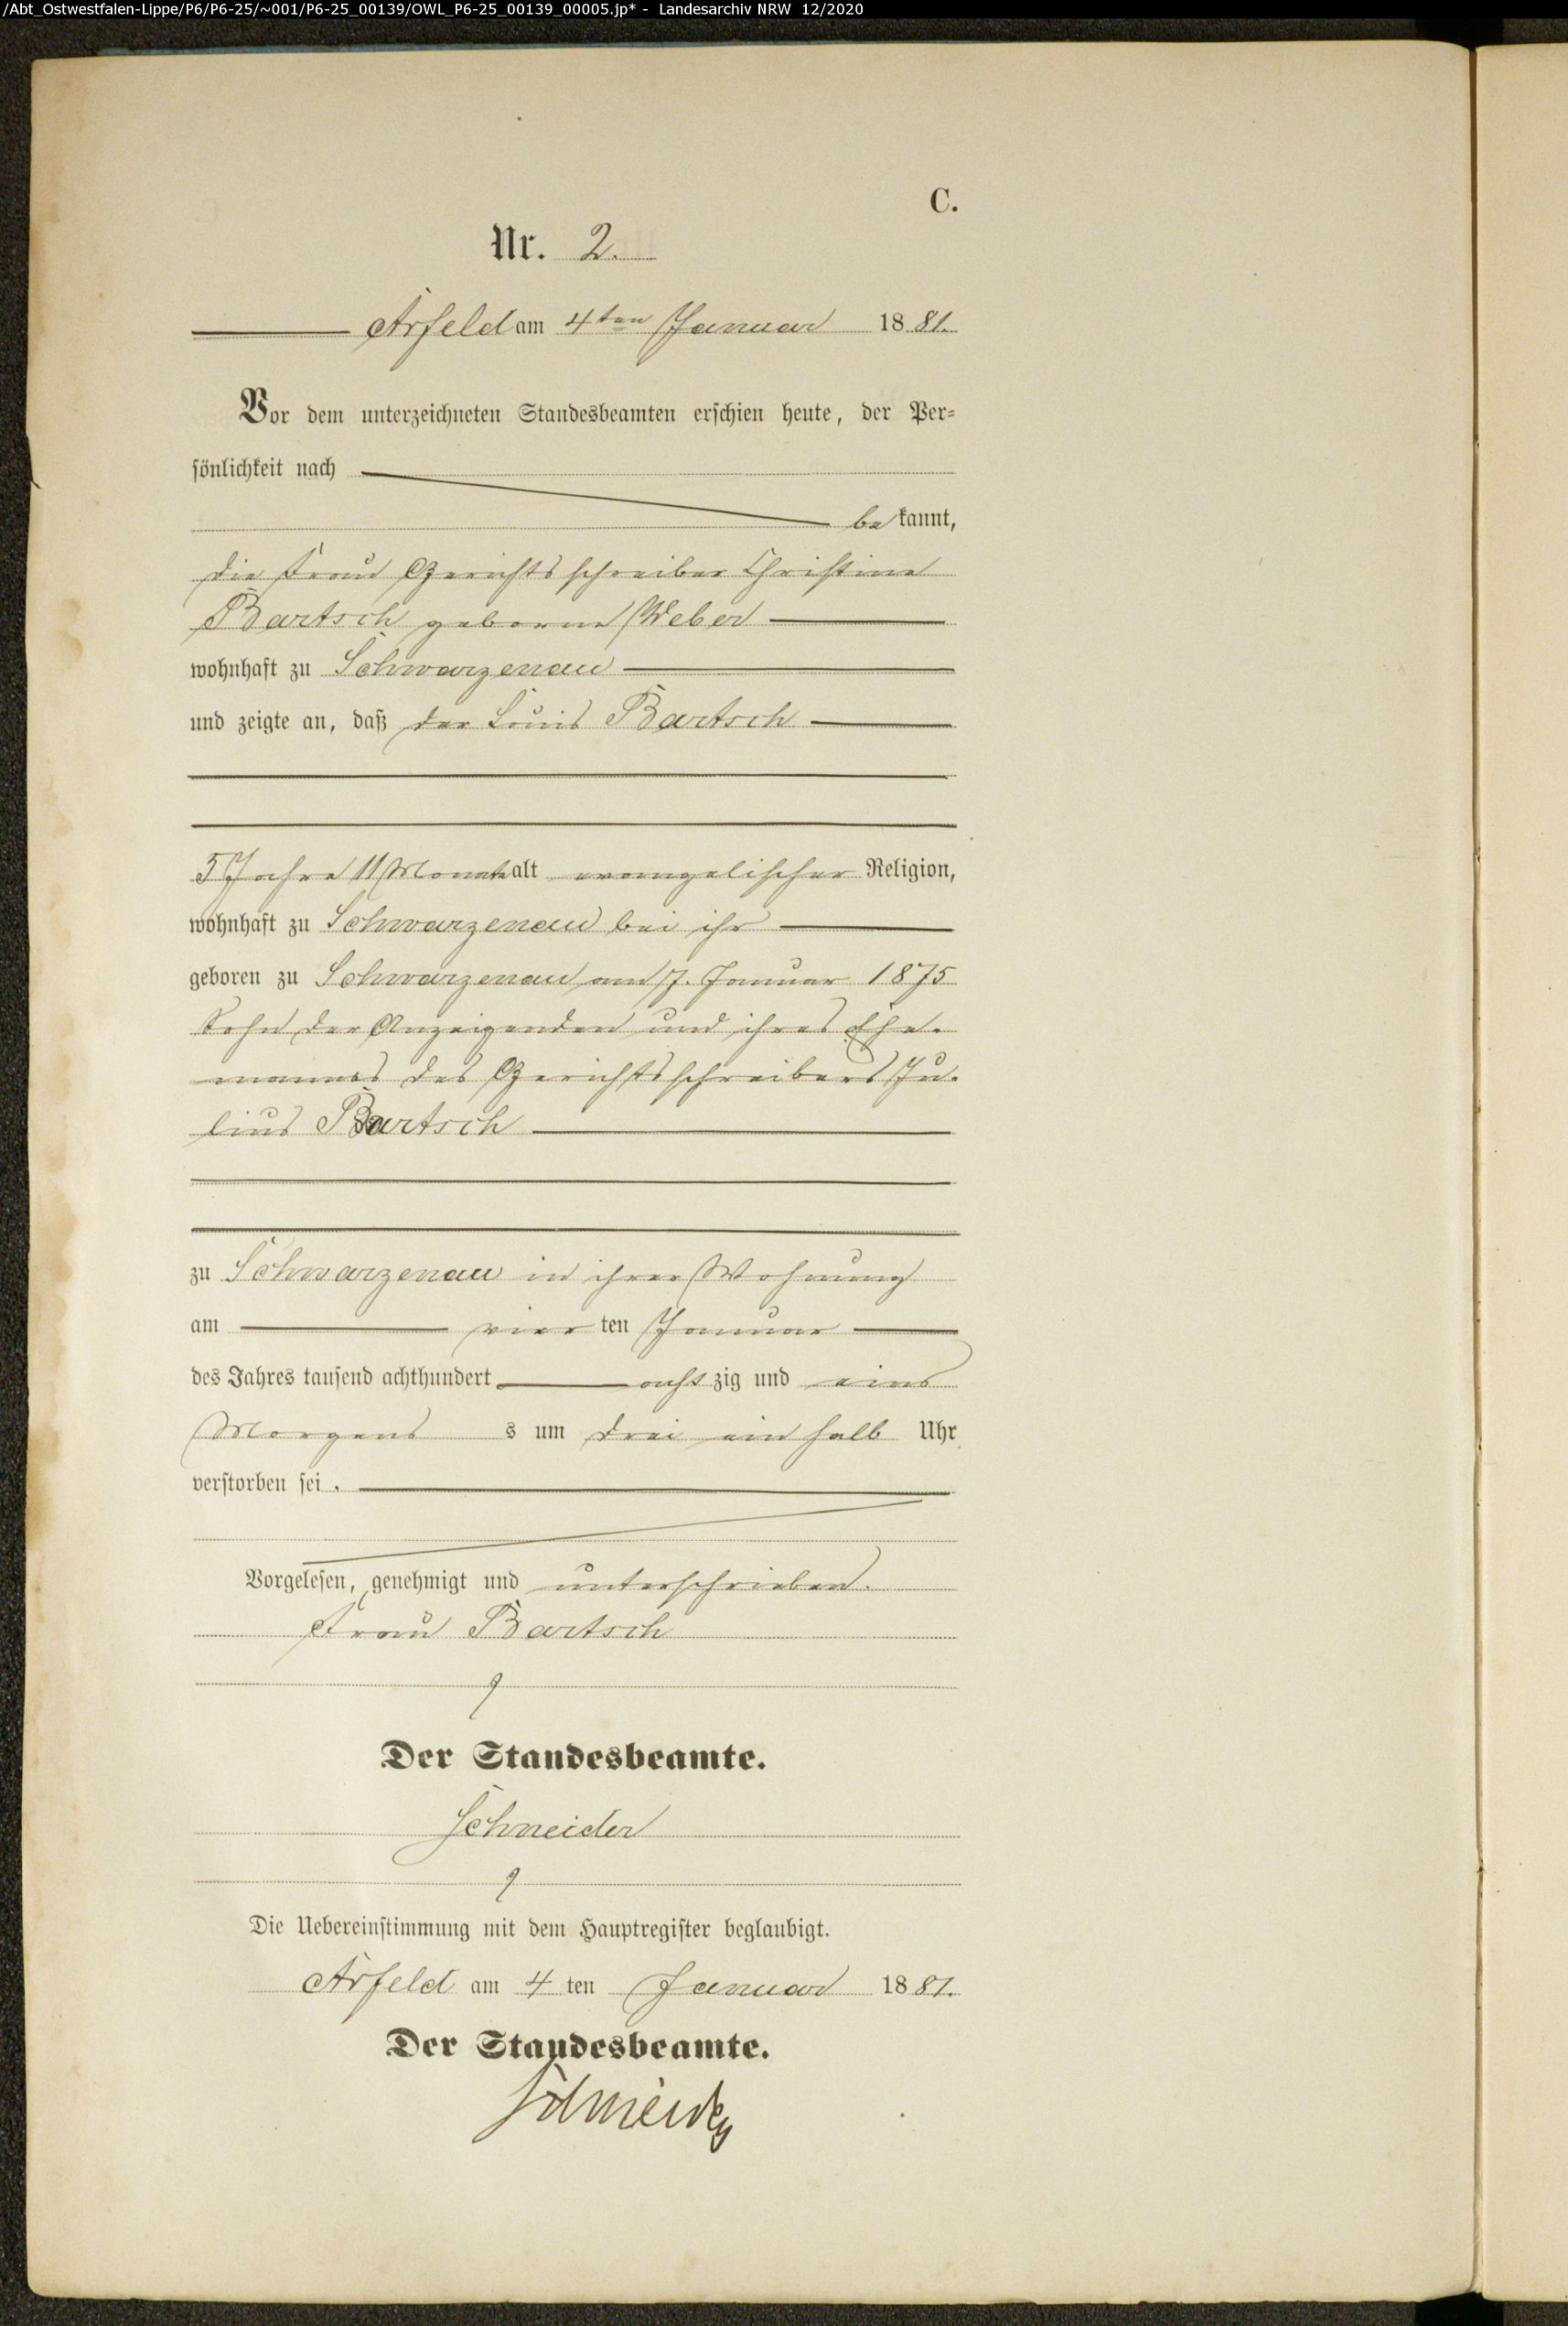 /Abt_Ostwestfalen-Lippe/P6/P6-25/~001/P6-25_00139/OWL_P6-25_00139_00005.jp* - Landesarchiv NRW 12/2020
C.
Nr. 2.
Arfeld am 4ten Januar 1881.
Vor dem unterzeichneten Standesbeamten erschien heute, der Per=
sönlichkeit nach
bekannt,
die Frau Gerichtsschreiber Christine
Bartsch geborne Weber
wohnhaft zu Schwarzenau
und zeigte an, daß der Louis Bartsch
5 Jahre 11 Monate alt evangelischer Religion,
wohnhaft zu Schwarzenau bei ihr
geboren zu Schwarzenau am 7. Januar 1875
Sohn der Anzeigenden und ihres Ehe-
mannes des Gerichtsschreibers Ju-
lius Bartsch
zu Schwarzenau in ihrer Wohnung
am vierten Januar
des Jahres tausend achthundert achtzig und eins
Morgens s um drei ein halb Uhr
verstorben sei.
Vorgelesen, genehmigt und unterschrieben.
Frau Bartsch
Der Standesbeamte.
Schneider
Die Uebereinstimmung mit dem Hauptregister beglaubigt.
Arfeld am 4ten Januar 1881.
Der Standesbeamte.
Schneider